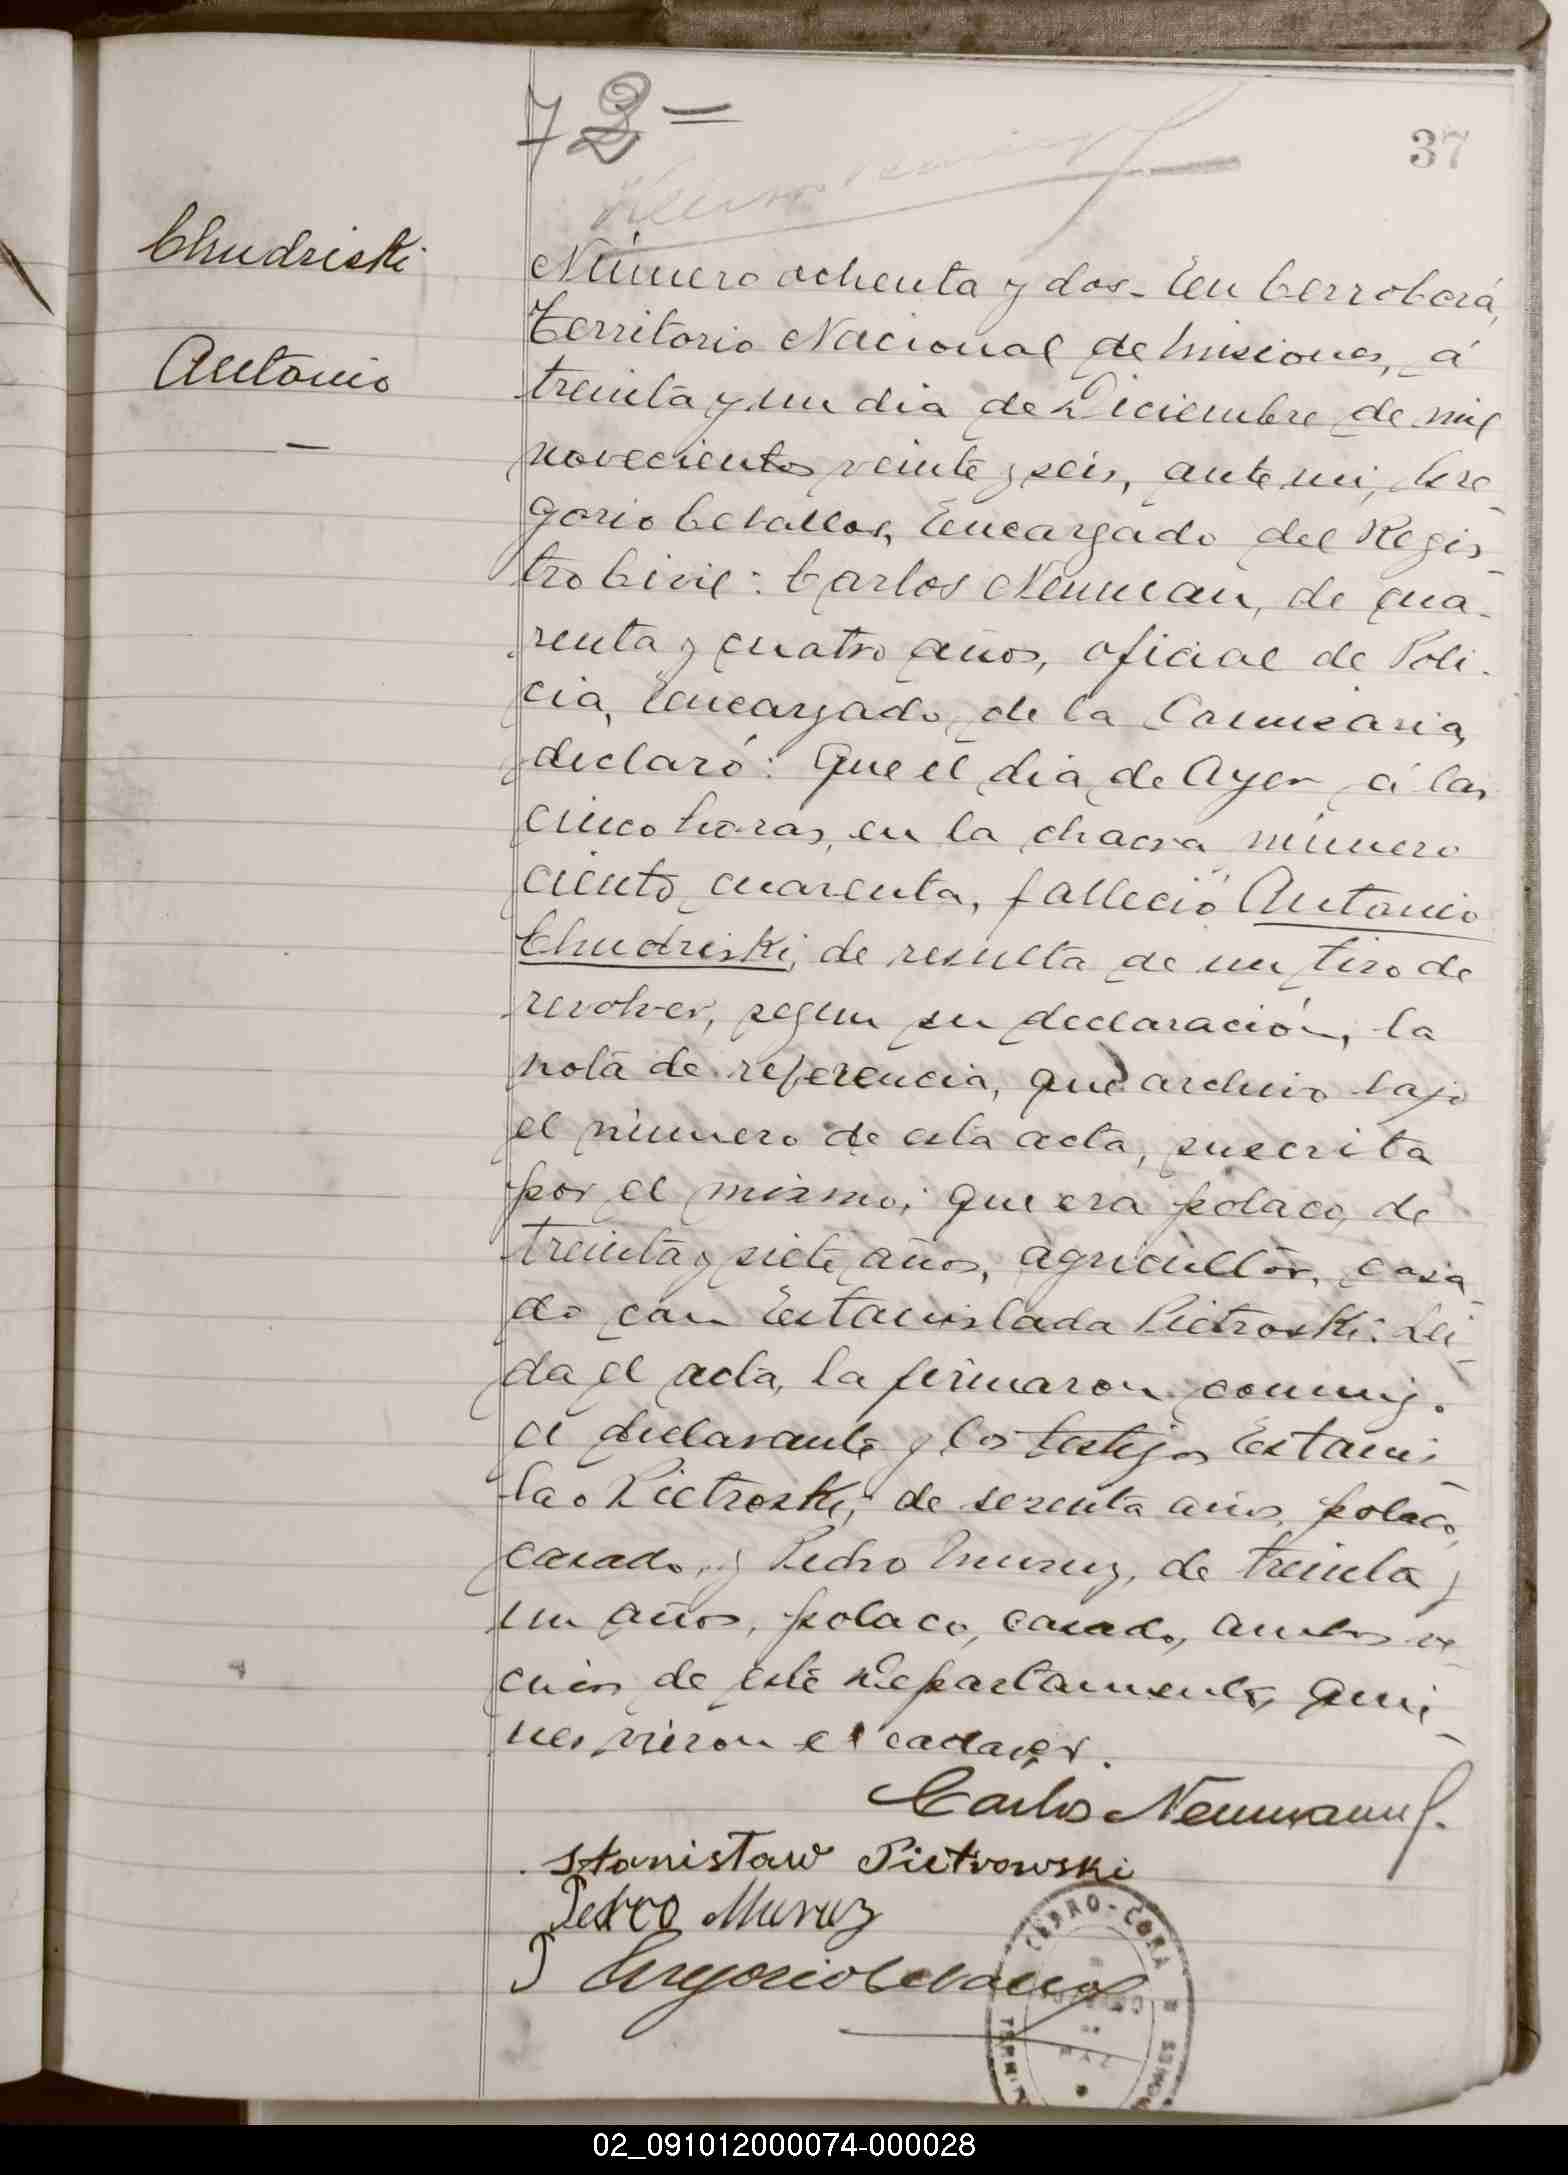 72=
37
Chudziski
Antonio
Número ochenta y dos- En Cerrocorá,
Territorio Nacional de Misiones, á
treinta y un dia de Diciembre de mil
novecientos veinte y seis, ante mi, Gre-
gorio Cevallos, Encargado del Regis-
tro Civil: Carlos Neuman, de cua-
renta y cuatro años, oficial de Poli-
cia, Encargado de la Comisaria,
declaró: Que el dia de Ayer á las
cinco horas, en la chacra número
ciento cuarenta, falleció Antonio
Chudriski, de resulta de un tiro de
revolver, segun su declaración, la
nota de referencia, que archivo bajo
el número de esta acta, suscrita
por el mismo; que era polaco, de
treinta y siete años, agricultor, casa-
do con Estanislada Pietroski: Lei-
da el acta, la firmaron conmig.
el declarante y los testigos Estanis-
lao Pietroski, de sesenta años, polaco,
casado, y Pedro Muruz, de treinta y
un años, polaco, casado, ambos ve-
cinos de este Departamento, quie-
nes vieron el cadaver.
Carlos Neumann
Stanisław Pietrowski
Pedro Muruz
Gregorio Cevallos
CERRO-CORÁ
02_091012000074-000028